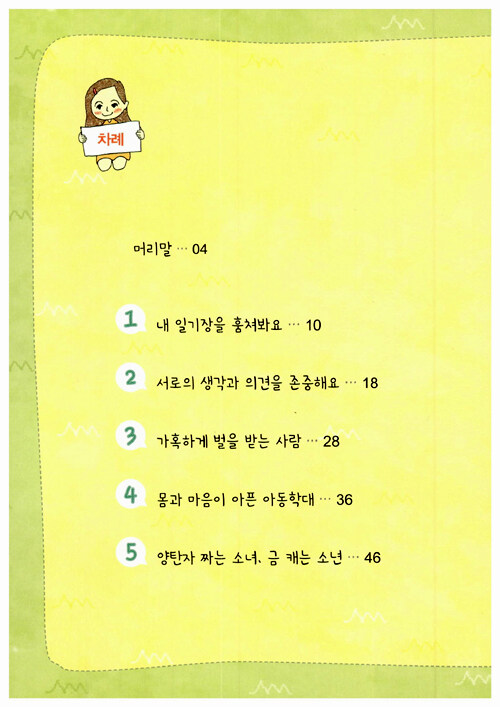 차례
머리말 ··· 04
1 내 일기장을 훔쳐봐요 ··· 10
2 서로의 생각과 의견을 존중해요 ··· 18
3 가혹하게 벌을 받는 사람 ··· 28
4 몸과 마음이 아픈 아동학대 ··· 36
5 양탄자 짜는 소녀, 금 캐는 소년 ··· 46